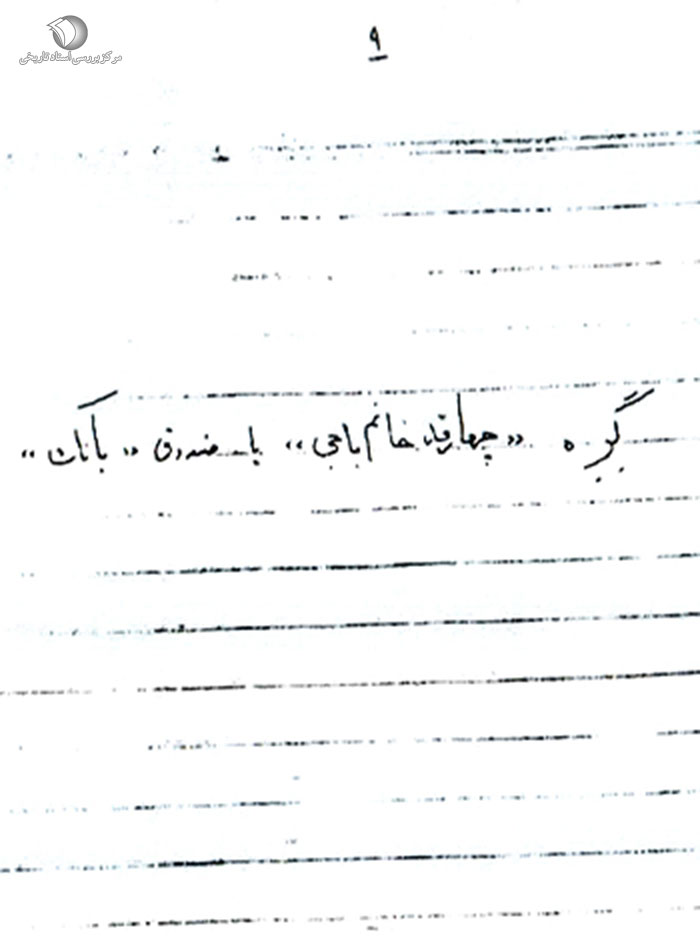 مرکز بررسی اسناد تاریخی
۹
گِرِه «چهارقد خانم باجی»، یا صندوق «بانک»